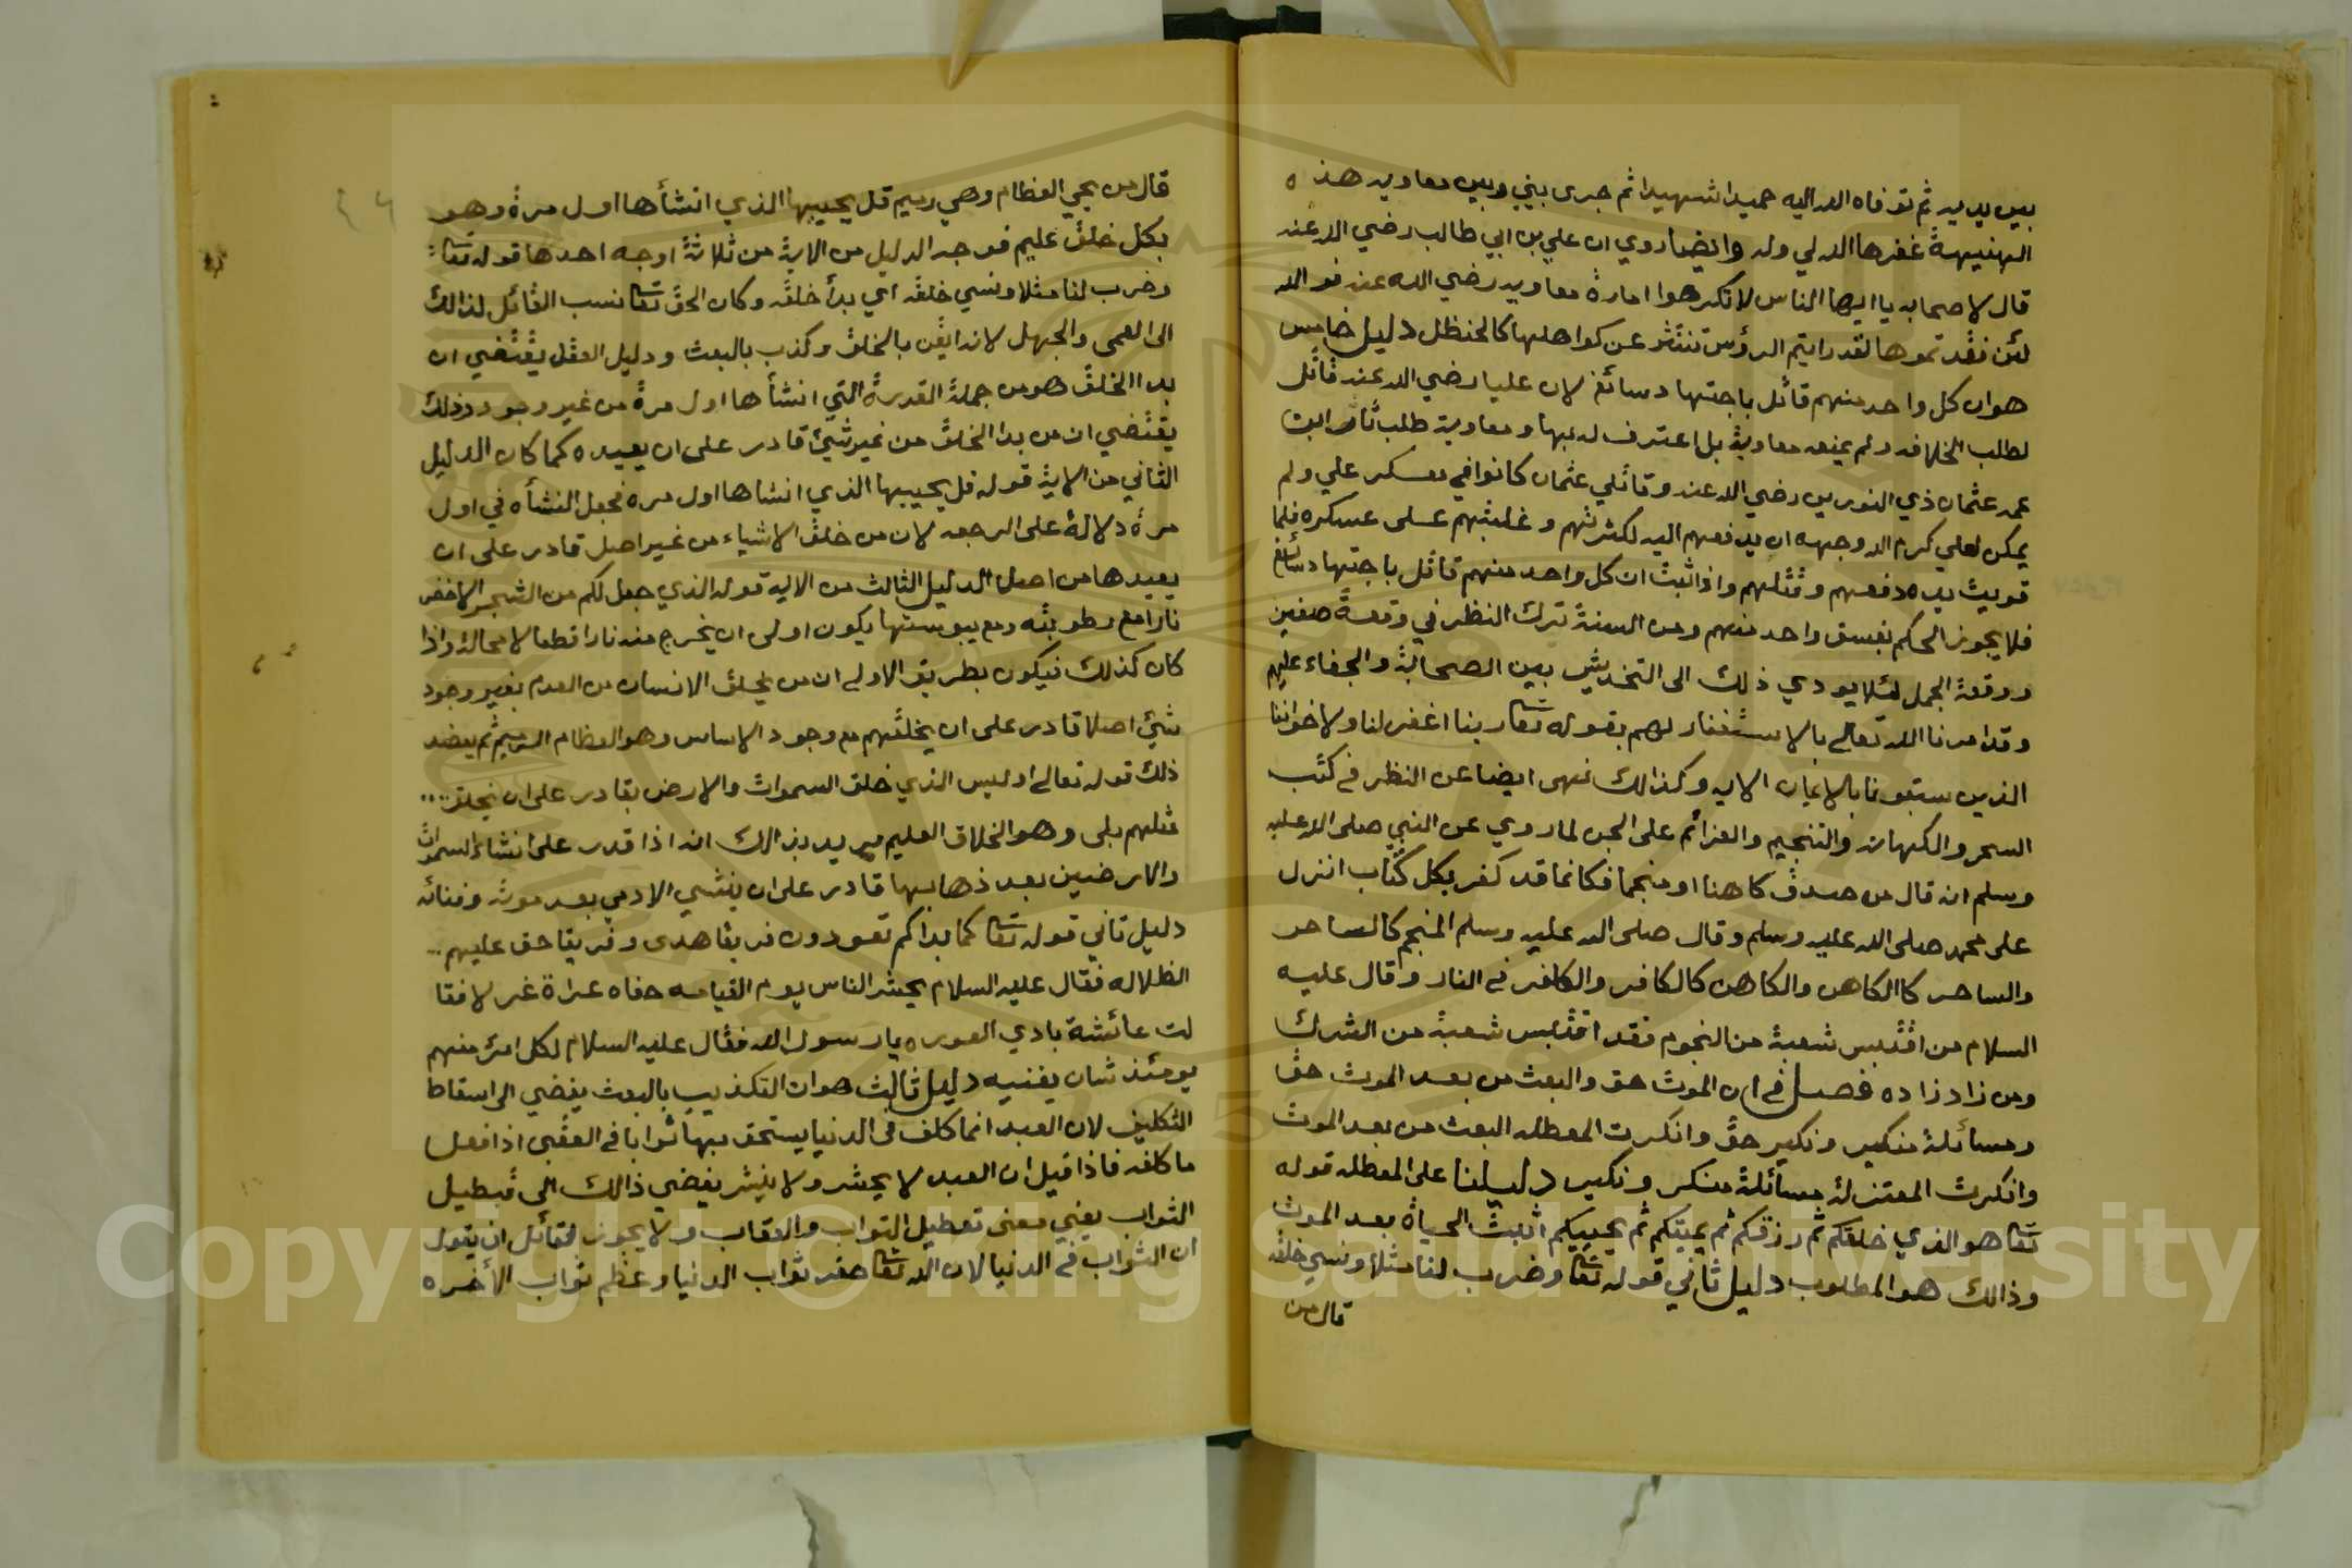 بين يديه ثم توفاه الله اليه حميدا شهيدا ثم جرى بيني وبين معاويه هذه
الهنيهة غفرها الله لي وله وايضا روي ان علي بن ابي طالب رضي الله عنه
قال لاصحابه يا ايها الناس لا تكرهوا امارة معاويه رضي الله عنه فوالله
لئن فقدتموها لقد رايتم الرؤس تنثر عن كواهلها كالحنظل دليل خامس
هو ان كل واحد منهم قاتل باجتهاد سائغ لان عليا رضي الله عنه قاتل
لطلب الخلافه ولم يمنعه معاوية بل اعترف له بها ومعاوية طلب ثار ابن
عمه عثمان ذي النورين رضي الله عنه وقاتلي عثمان كانوا في معسكر علي ولم
يمكن لعلي كرم الله وجهه ان يدفعهم اليه لكثرتهم وغلبتهم على عسكره فلما
قويت يده دفعهم وقتلهم واذا ثبت ان كل واحد منهم قاتل باجتهاد سائغ
فلا يجوز الحكم بفسق واحد منهم ومن السنة ترك النظر في وقعة صفين
ووقعة الجمل لئلا يودي ذلك الى التخديش بين الصحابة والجفاء عليهم
وقد امرنا الله تعالى بالاستغفار لهم بقوله تعا ربنا اغفر لنا ولاخواننا
الذين سبقونا بالايمان الايه وكذالك نهى ايضا عن النظر في كتب
السحر والكهان والتنجيم والعزائم على الجن لما روي عن النبي صلى الله عليه
وسلم انه قال من صدق كاهنا او منجما فكانما قد كفر بكل كتاب انزل
على محمد صلى الله عليه وسلم وقال صلى الله عليه وسلم المنجم كالساحر
والساحر كاالكاهن والكاهن كالكافر والكافر في النار وقال عليه
السلام من اقتبس شعبة من النجوم فقد اقتبس شعبة من الشرك
ومن زاد زاده فصل في ان الموت حق والبعث من بعد الموت حق
ومسائلة منكير ونكير حق وانكرت المعطله البعث من بعد الموت
وانكرت المعتزلة مسائلة منكر ونكير دليلنا على المعطله قوله
تعا هو الذي خلقكم ثم رزقكم ثم يميتكم ثم يحييكم اثبت الحياة بعد الموت
وذالك هو المطلوب دليل ثاني قوله تعا وضرب لنا مثلا ونسي خلقه
قال من
قال من يحي العظام وهي رميم قل يحييها الذي انشأها اول مرة وهو
بكل خلق عليم فوجه الدليل من الاية من ثلاثة اوجه احدها قوله تعا
وضرب لنا مثلا ونسي خلقه اي بدأ خلقه وكان الحق تعا نسب القائل لذالك
الى العمى والجهل لانه ايقن بالخلق وكذب بالبعث ودليل العقل يقتضي ان
بدا الخلق هو من جملة القدرة التي انشأها اول مرة من غير وجود وذلك
يقتضي ان من بدا الخلق من غير شيئ قادر على ان يعيده كما كان الدليل
الثاني من الاية قوله قل يحييها الذي انشاها اول مره فجعل النشأه في اول
مرة دلالة على الرجعه لان من خلق الاشياء من غير اصل قادر على ان
يعيدها من اصل الدليل الثالث من الايه قوله الذي جعل لكم من الشجر الاخضر
نارا مع رطوبته ومع يبوستها يكون اولى ان يخرج منه نارا قطعا لا محالة واذا
كان كذلك فيكون بطريق الاولى ان من يخلق الانسان من العدم بغير وجود
شيئ اصلا قادر على ان يخلقهم مع وجود الاساس وهو العظام الرميم ثم يعضد
ذلك قوله تعالى اوليس الذي خلق السموات والارض بقادر على ان يخلق
مثلهم بلى وهو الخلاق العليم يريد بذالك انه اذا قدر على انشاء السموات
والارضين بعد ذهابها قادر على ان ينشي الادمي بعد موته وفنائه
دليل ثاني قوله تعا كما بداكم تعودون فريقا هدى وفريقا حق عليهم
الظلاله فقال عليه السلام يحشر الناس يوم القيامه حفاه عراة غرلا فقا
لت عائشة بادي العوره يارسول الله فقال عليه السلام لكل امرئ منهم
يومئذ شان يغنيه دليل ثالث هو ان التكذيب بالبعث يفضي الى اسقاط
التكليف لان العبد انما كلف في الدنيا يستحق بها ثوابا في العقبى اذا فعل
ما كلفه فاذا قيل ان العبد لا يحشر ولا ينشر يفضي ذالك الى تبطيل
الثواب يعني معنى تعطيل الثواب والعقاب ولا يجوز لقائل ان يقول
ان الثواب في الدنيا لان الله تعا حقر ثواب الدنيا وعظم ثواب الأخره
Copyright © King Saud University